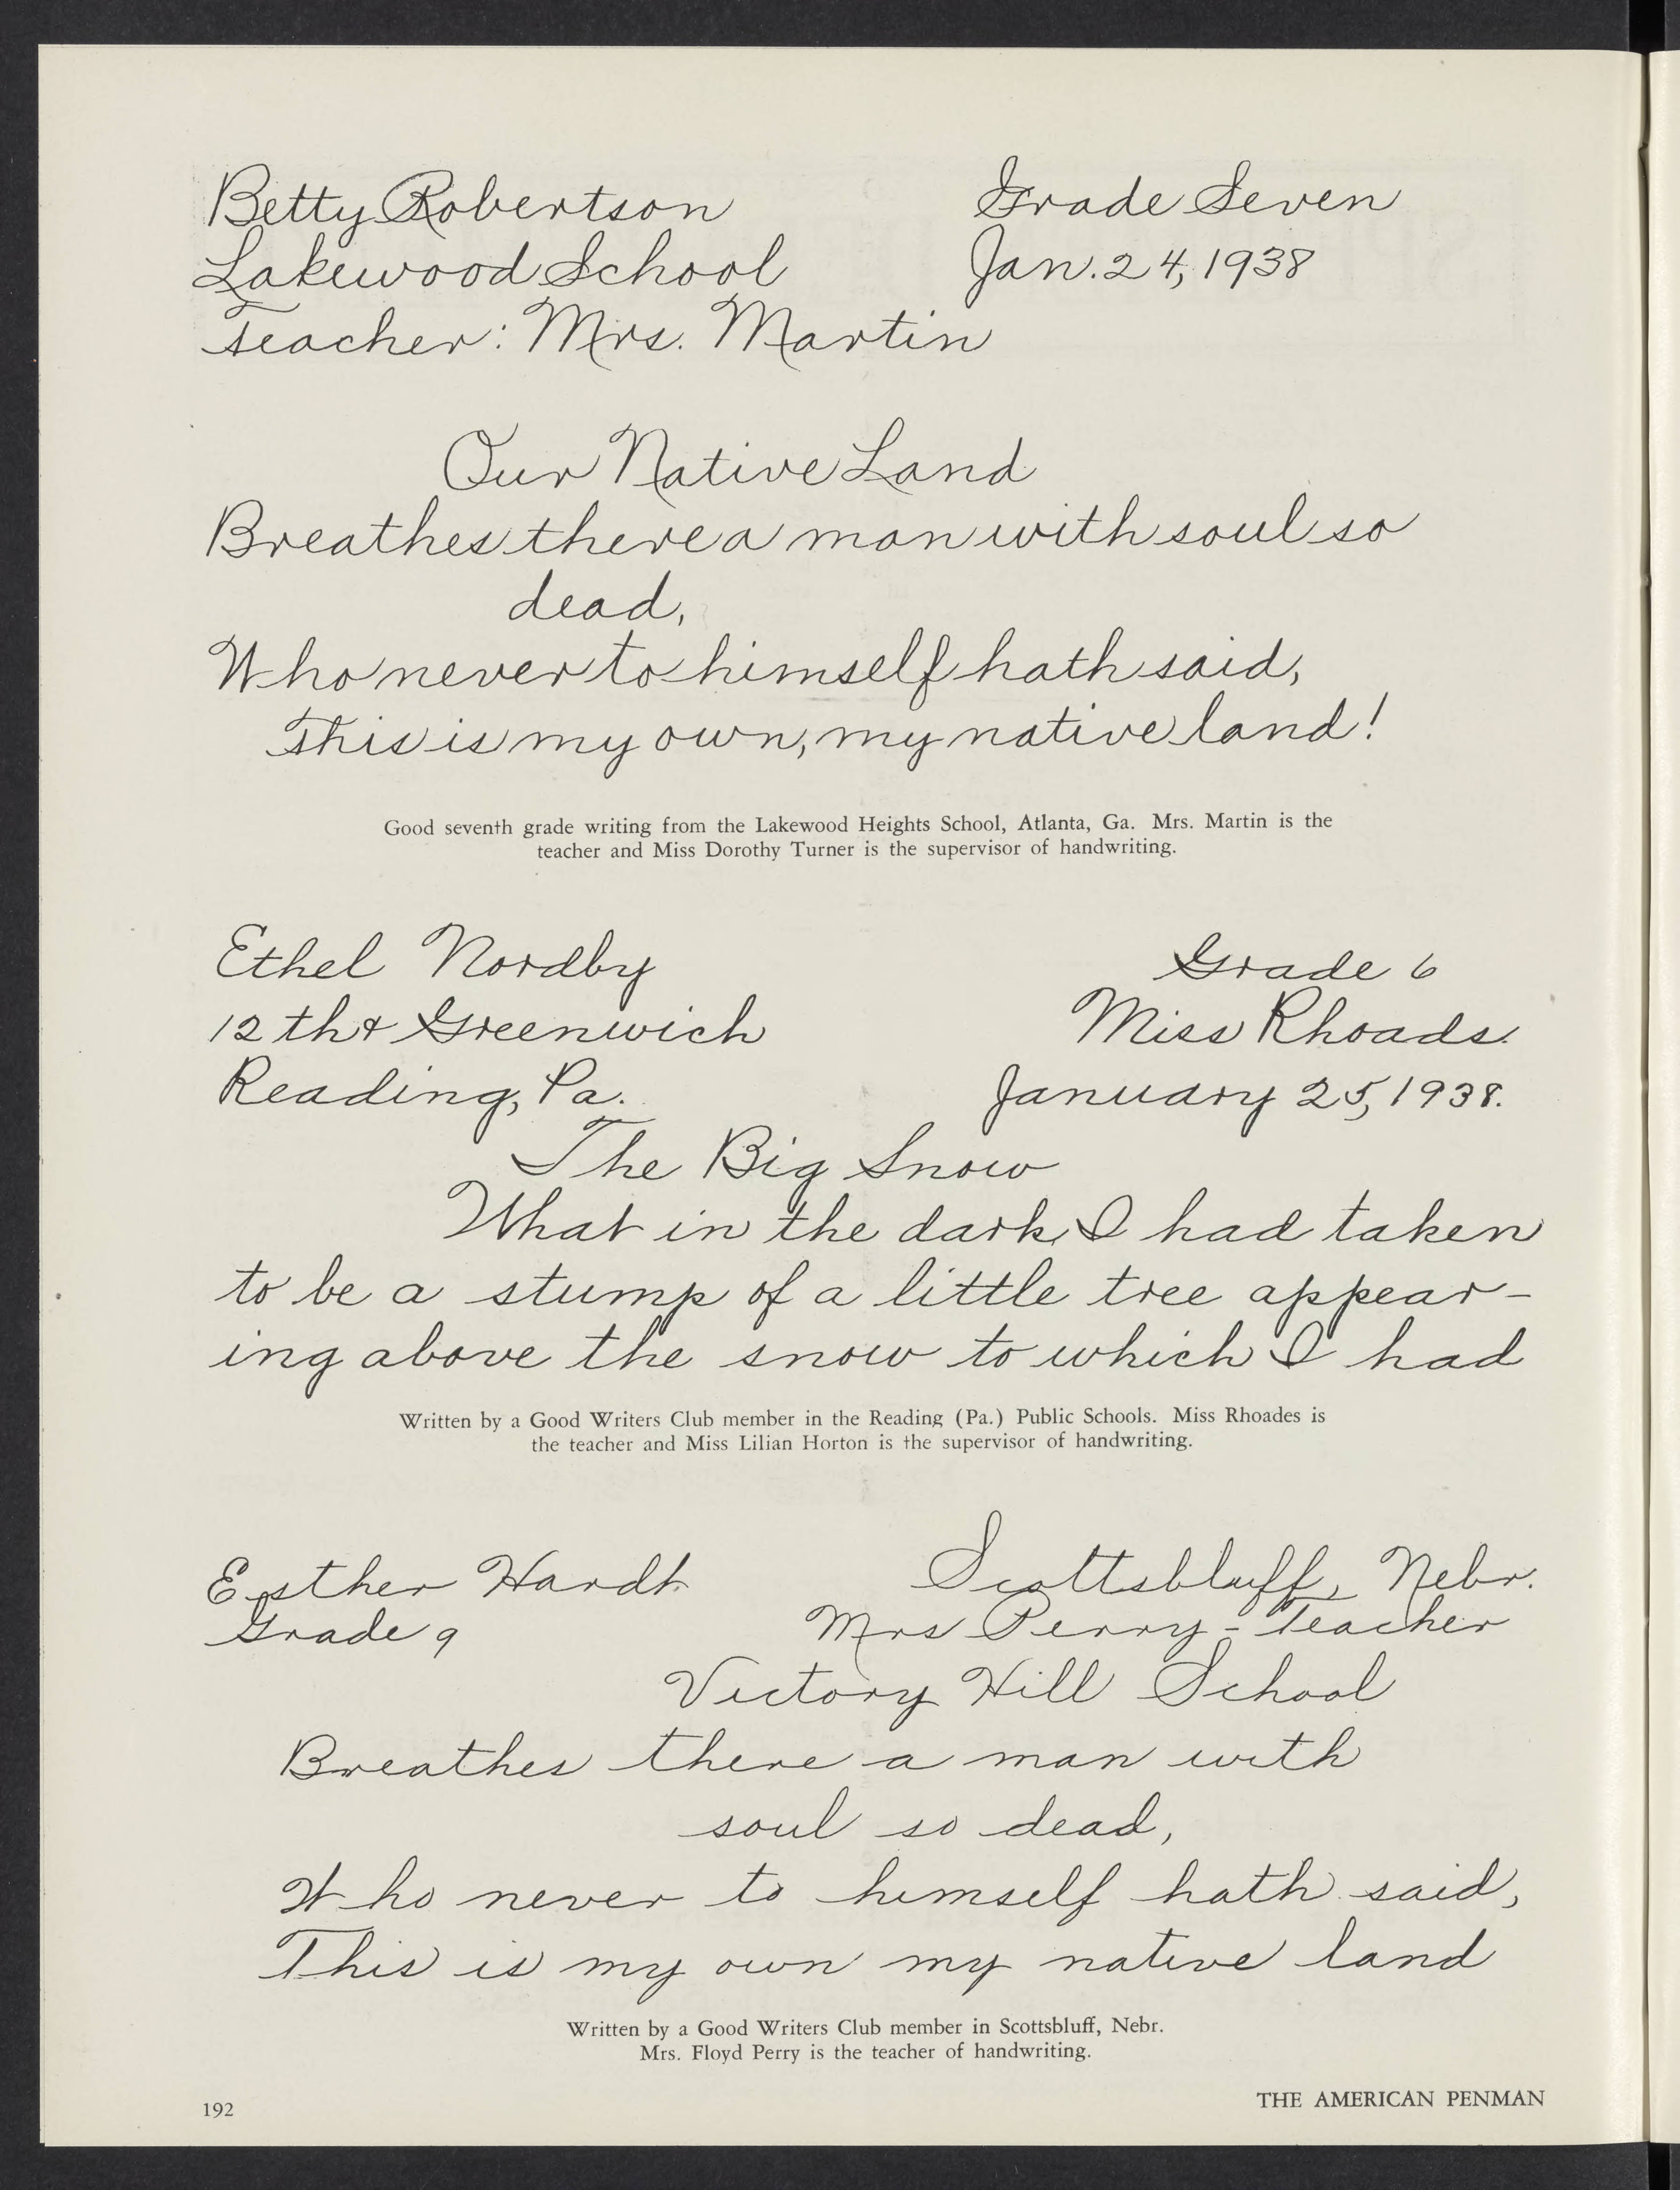 Betty Robertson Grade Seven
Lakewood School Jan. 24, 1938
Teacher: Mrs. Martin
Our Native Land
Breathes there a man with soul so
dead,
Who never to himself hath said,
This is my own, my native land!
Good seventh grade writing from the Lakewood Heights School, Atlanta, Ga. Mrs. Martin is the
teacher and Miss Dorothy Turner is the supervisor of handwriting.
Ethel Nordby Grade 6
12th & Greenwich Miss Rhoads.
Reading, Pa. January 25, 1938.
The Big Snow
What in the dark I had taken
to be a stump of a little tree appear-
ing above the snow to which I had
Written by a Good Writers Club member in the Reading (Pa.) Public Schools. Miss Rhoades is
the teacher and Miss Lilian Horton is the supervisor of handwriting.
Esther Hardt Scottsbluff, Nebr.
Grade 9 Mrs Perry - Teacher
Victory Hill School
Breathes there a man with
soul so dead,
Who never to himself hath said,
This is my own my native land
Written by a Good Writers Club member in Scottsbluff, Nebr.
Mrs. Floyd Perry is the teacher of handwriting.
192 THE AMERICAN PENMAN